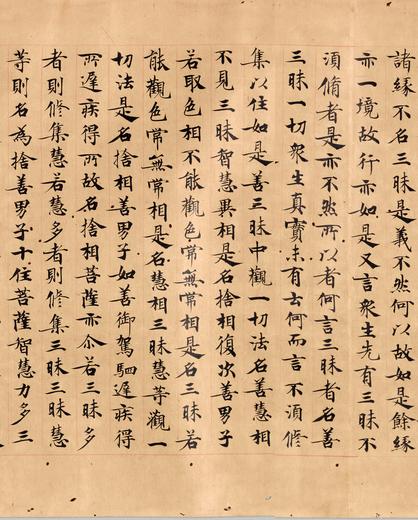 諸緣不名三昧是義不然何以故如是餘緣
亦一境故行亦如是又言衆生先有三昧不
須脩者是亦不然所以者何言三昧者名善
三昧一切衆生真實未有云何而言不須修
集以住如是善三昧中觀一切法名善慧相
不見三昧智慧異相是名捨相復次善男子
若取色相不能觀色常無常相是名三昧若
能觀色常無常相是名慧相三昧慧等觀一
切法是名捨相善男子如善御駕駟遲疾得
所遲疾得所故名捨相菩薩亦尒若三昧多
者則修集慧若慧多者則修集三昧三昧慧
等則名為捨善男子十住菩薩智慧力多三